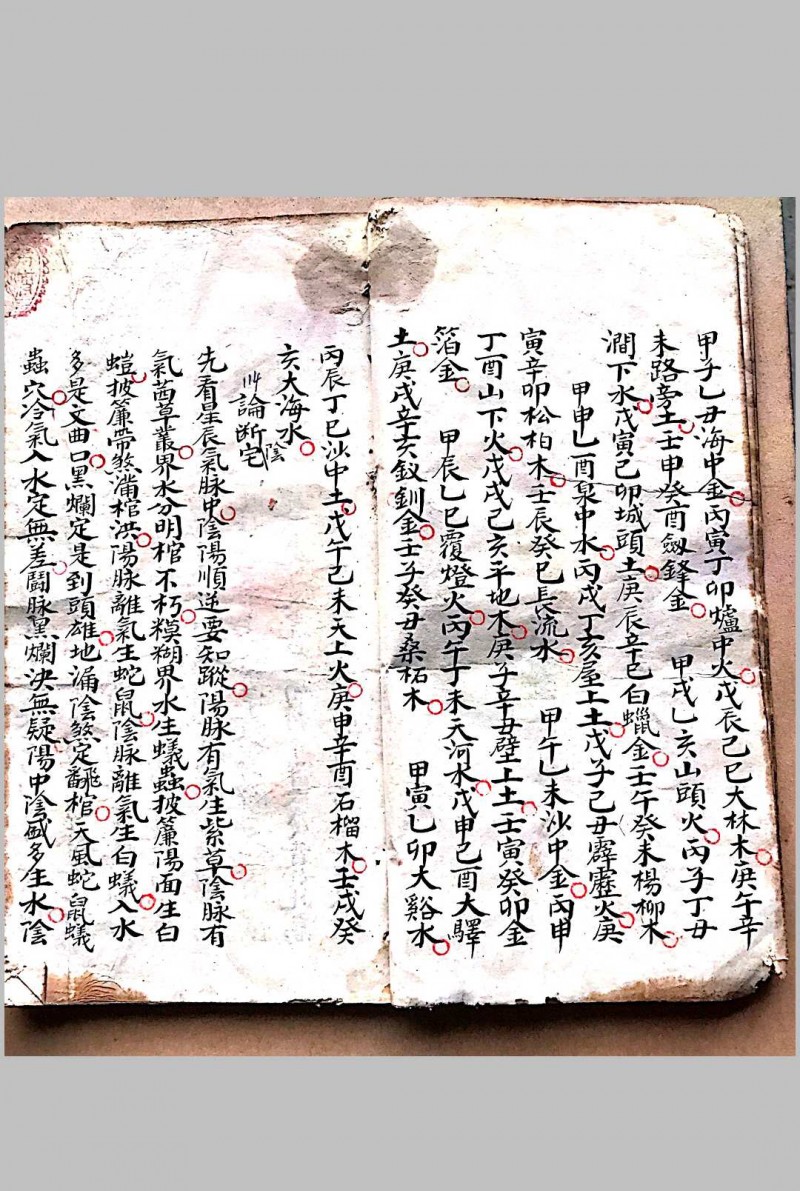 甲子乙丑海中金丙寅丁卯爐中火戊辰己巳大林木庚午辛
未路旁土壬申癸酉劔鋒金 甲戌乙亥山頭火丙子丁丑
澗下水戊寅己卯城頭土庚辰辛巳白蠟金壬午癸未楊柳木
甲申乙酉泉中水丙戌丁亥屋上土戊子己丑霹靂火庚
寅辛卯松柏木壬辰癸巳長流水 甲午乙未沙中金丙申
丁酉山下火戊戌己亥平地木庚子辛丑壁上土壬寅癸卯金
箔金 甲辰乙巳覆燈火丙午丁未天河水戊申己酉大驛
土庚戌辛亥釵釧金壬子癸丑桑柘木 甲寅乙卯大谿水
丙辰丁巳沙中土戊午己未天上火庚申辛酉石榴木壬戌癸
亥大海水
論斷陰宅
先看星辰氣脉中陰陽順逆要知蹤陽脉有氣生紫草陰脉有
氣茜草叢界水分明棺不朽糢糊界水生蟻蟲披簾陽面生白
螘披簾帶煞滿棺洪陽脉離氣生蛇鼠陰脉離氣生白蟻入水
多是文曲口黑爛定是到頭雄地漏陰煞定飜棺天風蛇鼠蟻
蟲穴冷氣入水定無差鬪脉黑爛決無疑陽中陰盛多生水陰